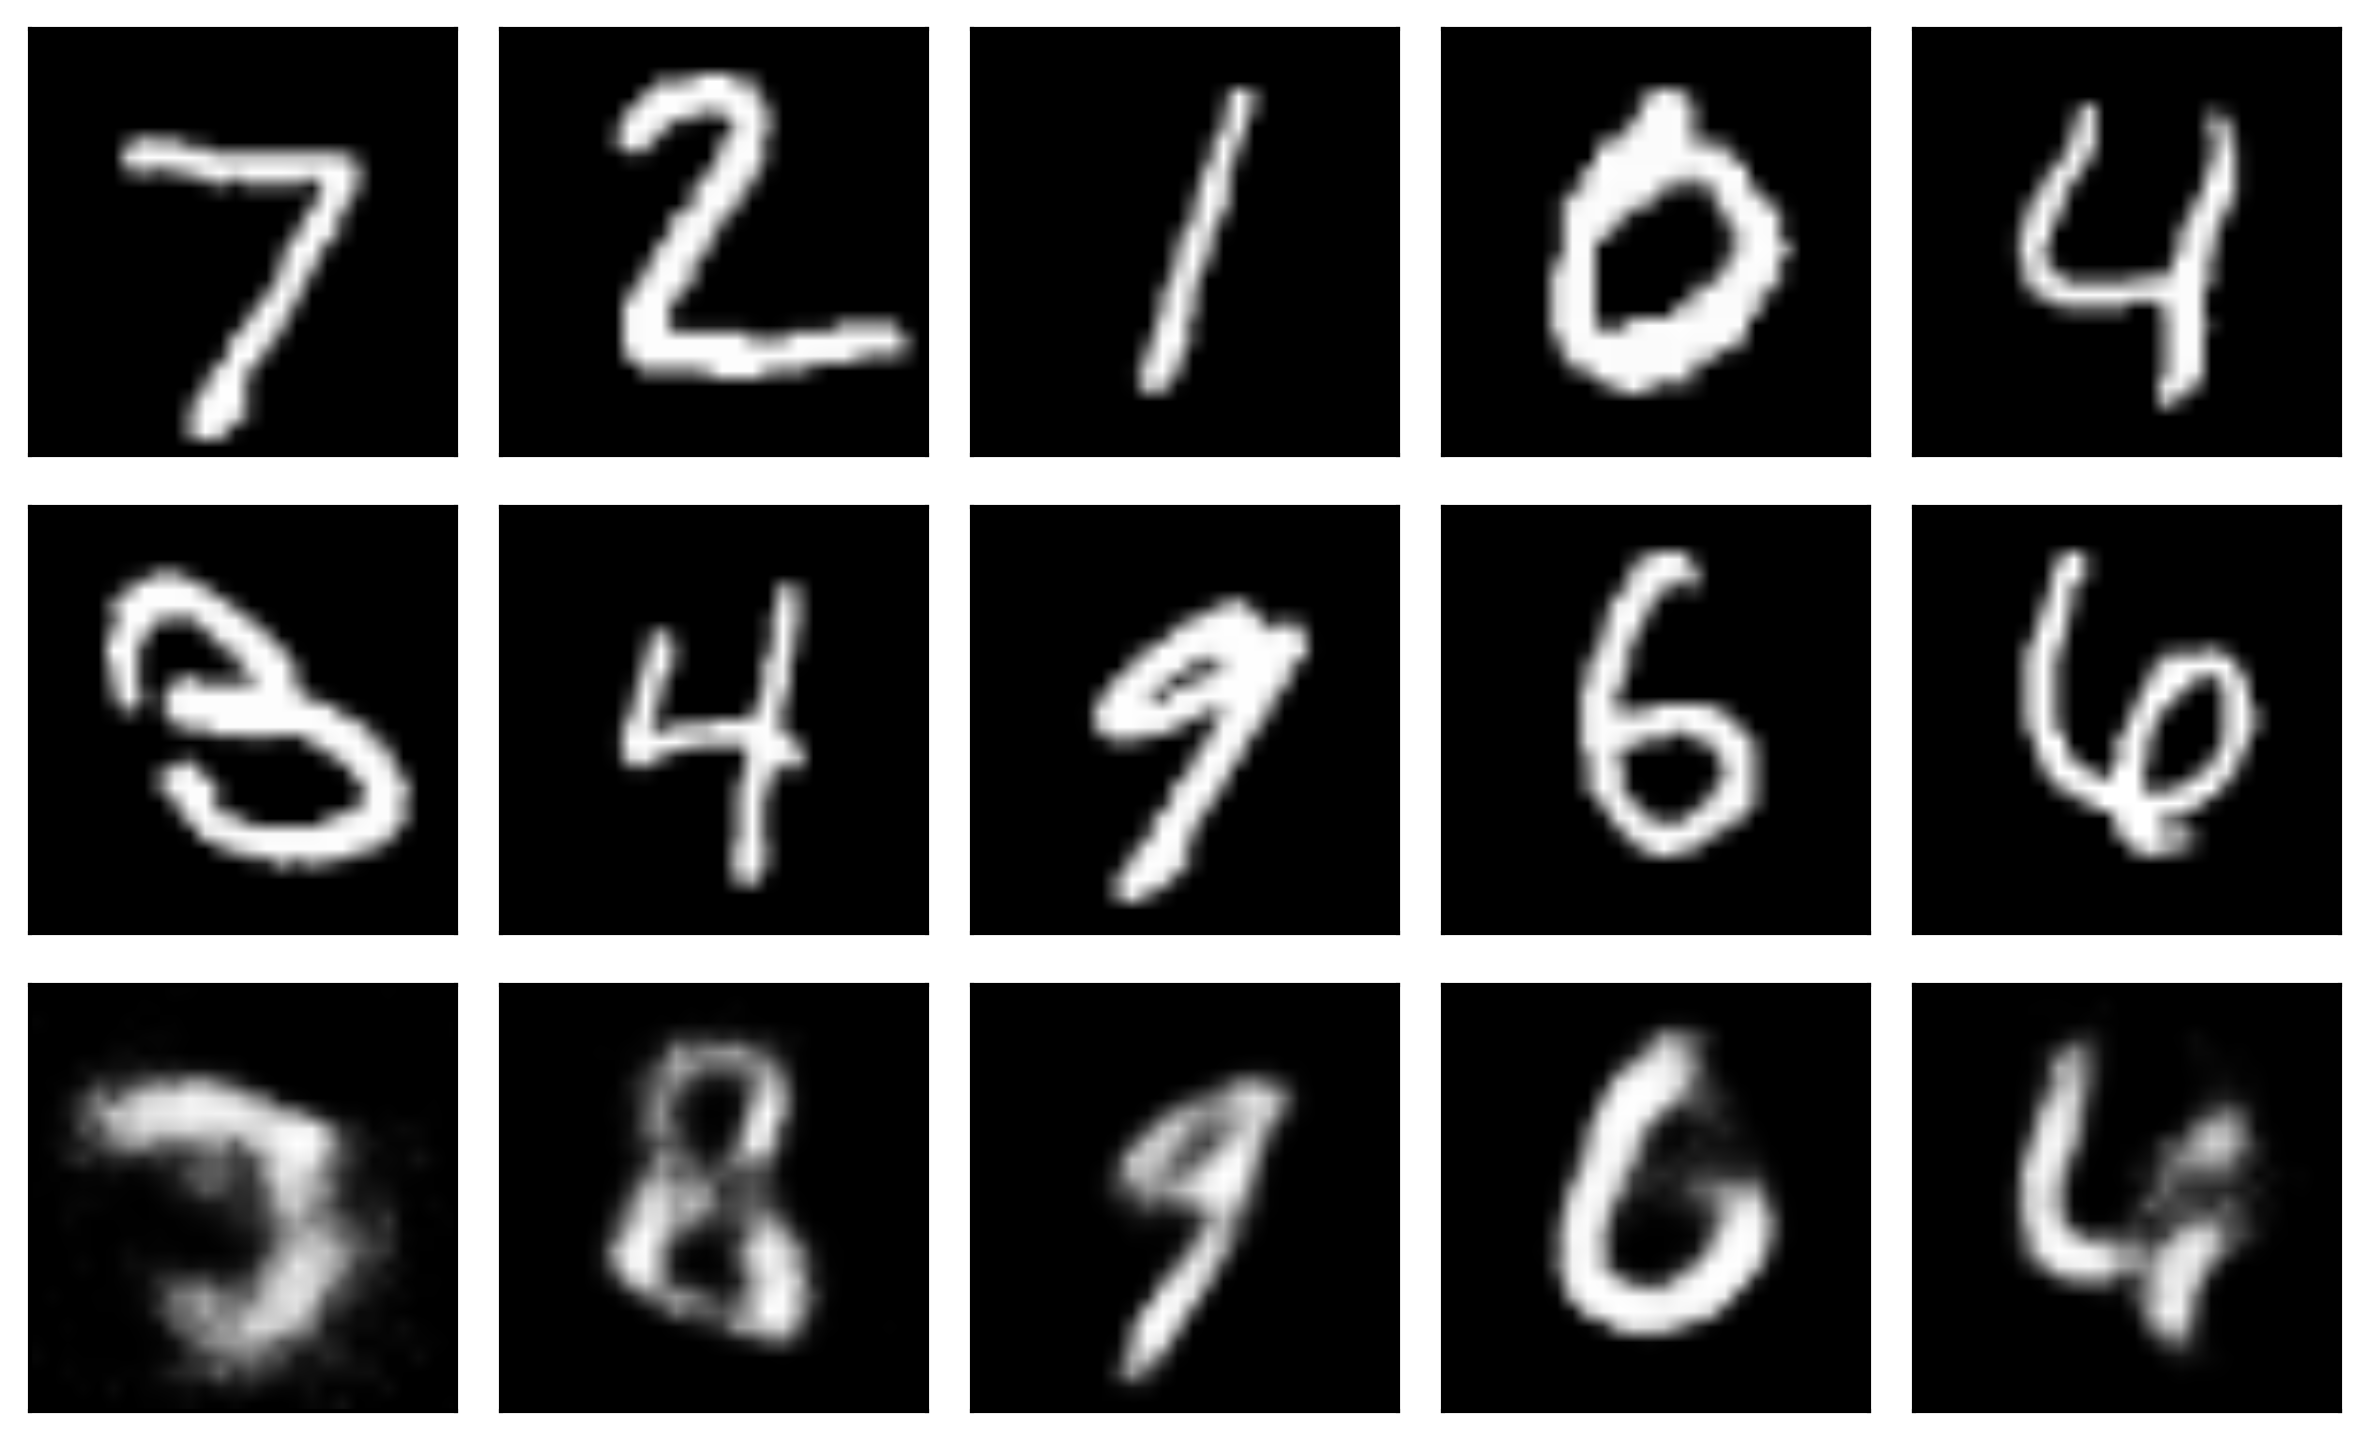 7 2 1 0 4
8 4 9 6 6
8 9 6